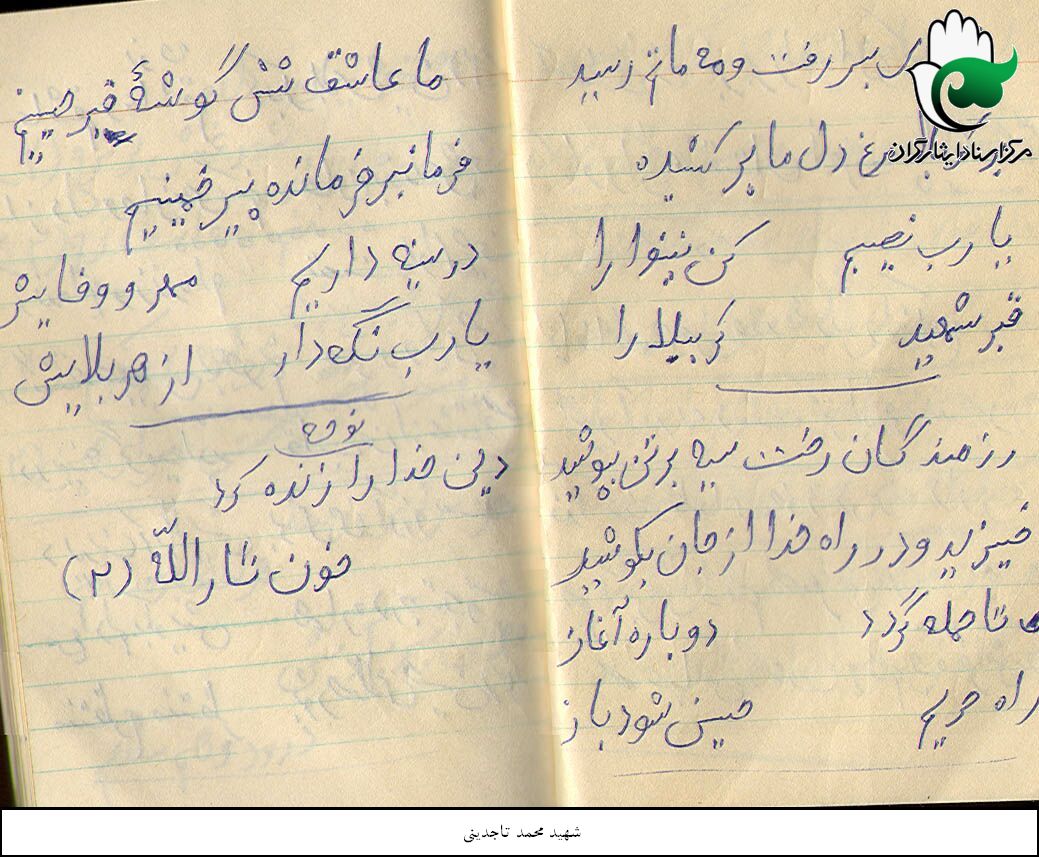 مرکز اسناد ایثارگران
بسر رفت و مه ماتم رسید
مرغ دل ما پر کشیده
یارب نصیبم کن نینوا را
قبر شهید کربلا را
رزمندگان رخت سیه بر تن بپوشید
خیزید و در راه خدا از جان بکوشید
تا حمله گردد دوباره آغاز
راه حریم حسین شود باز
ما عاشق شش گوشهٔ قبر حسینیم
فرمانبر فرمانده پیر خمینیم
در سینه داریم مهر و وفایش
یارب نگه دار از هر بلایش
نوحه
دین خدا را زنده کرد
خون ثارالله (۲)
شهید محمد تاجدینی